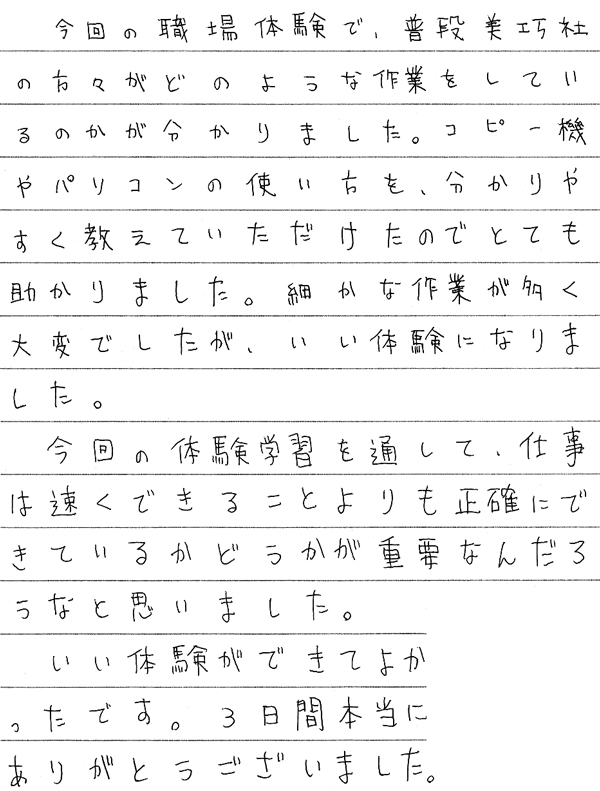 今回の職場体験で、普段美巧社
の方々がどのような作業をしてい
るのかが分かりました。コピー機
やパソコンの使い方を、分かりや
すく教えていただけたのでとても
助かりました。細かな作業が多く
大変でしたが、いい体験になりま
した。
今回の体験学習を通して、仕事
は速くできることよりも正確にで
きているかどうかが重要なんだろ
うなと思いました。
いい体験ができてよか
ったです。3日間本当に
ありがとうございました。